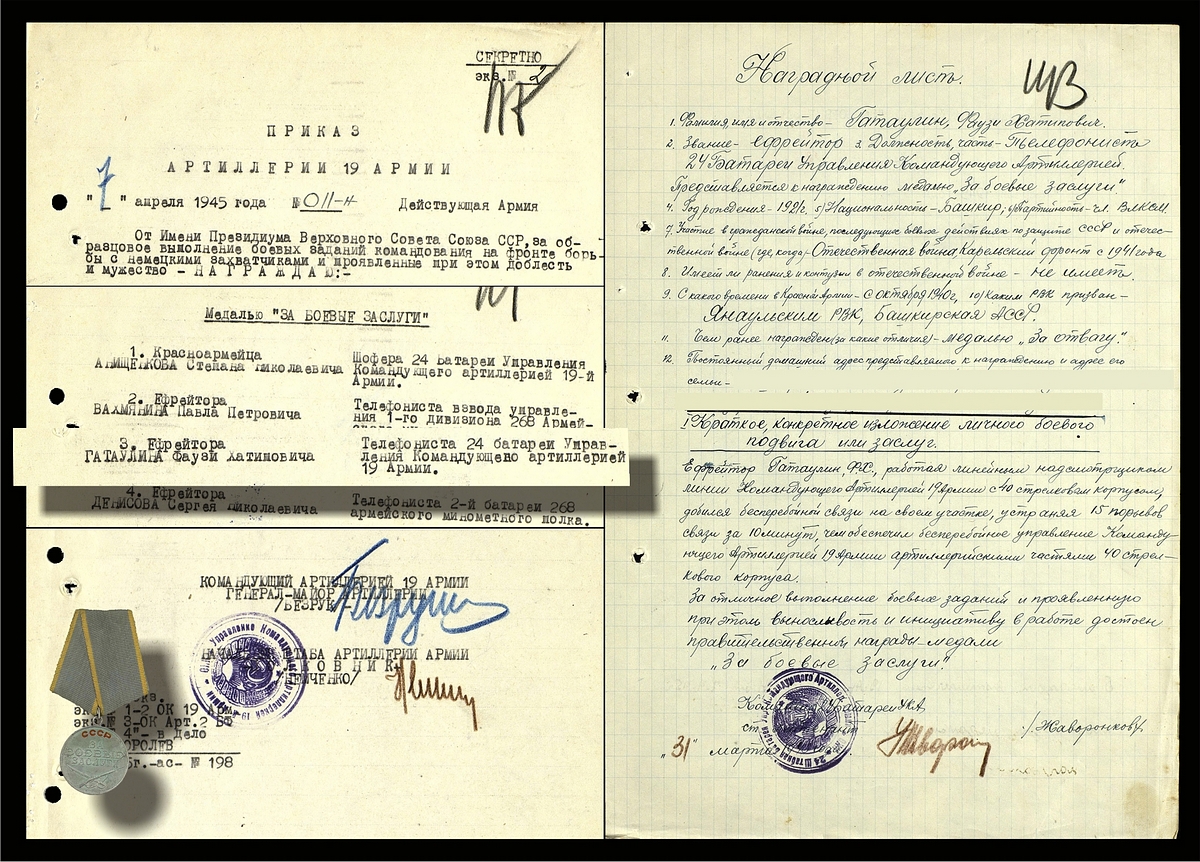 СЕКРЕТНО
экз.№ 2
ПРИКАЗ
АРТИЛЛЕРИИ 19 АРМИИ
"7" апреля 1945 года №011-н Действующая Армия
От Имени Президиума Верховного Совета Союза ССР, за об-
разцовое выполнение боевых заданий командования на фронте борь-
бы с немецкими захватчиками и проявленные при этом доблесть
и мужество - НАГРАЖДАЮ:-
Медалью "ЗА БОЕВЫЕ ЗАСЛУГИ"
1. Красноармейца
АНИЩЕНКОВА Степана Николаевича
Шофера 24 батареи Управления
Командующего артиллерией 19-й
Армии.
2. Ефрейтора
ВАХМЯНИНА Павла Петровича
Телефониста взвода управле-
ния 1-го дивизиона 268 Армей-
3. Ефрейтора
ГАТАУЛИНА Фаузи Хатиповича
Телефониста 24 батареи Управ-
ления Командующего артиллерией
19 Армии.
4. Ефрейтора
ДЕНИСОВА Сергея Николаевича
Телефониста 2-й батареи 268
армейского минометного полка.
КОМАНДУЮЩИЙ АРТИЛЛЕРИЕЙ 19 АРМИИ
ГЕНЕРАЛ-МАЙОР АРТИЛЛЕРИИ
/БЕЗРУК/
ШТАБА АРТИЛЛЕРИИ АРМИИ
ОВНИК
ЕЙЧЕНКО/
экз.
1-2 ОК 19 Арм
экз.№ 3-ОК Арт.2 БФ
4"- в Дело
ОРОЛЕВ
5г.-ас- № 198
СССР
ЗА
БОЕВЫЕ
ЗАСЛУГИ
Наградной листъ.
1. Фамилия, имя и отчество - Гатаулин, Фаузи Хатипович.
2. Звание - ефрейтор 3. Должность, часть - Телефонистъ
24 Батареи Управления Командующего Артиллерией.
Представляется к награждению медалью „За боевые заслуги".
4. Год рождения - 1921г. 5) Национальность - Башкир; 6) Партийность - чл. ВЛКСМ.
7. Участие в гражданской войне, последующих боевых действиях по защите СССР и отечес-
твенной войне (где, когда) - Отечественная война Карельский фронт с 1941 года
8. Имеет ли ранения и контузии в отечественной войне - не имеетъ.
9. С какого времени в Красной Армии - с октября 1940г, 10) Каким РВК призван -
Янаульским РВК, Башкирская АССР.
11. Чем ранее награжден (за какие отличия) - медалью „За отвагу".
12. Постоянный домашний адрес представляемого к награждению и адрес его
семьи -
I Краткое, конкретное изложение личного боевого
подвига или заслуг.
Ефрейтор Гатаулин Ф.Х., работая линейным надсмотрщиком
линии Командующего Артиллерией 19 Армии с 40 стрелковом корпусом,
добился бесперебойной связи на своем участке, устраняя 15 порывов
связи за 10 минут, чем обеспечил бесперебойное управление Команду-
ющего Артиллерией 19 Армии артиллерийскими частями 40 стрел-
кового корпуса.
За отличное выполнение боевых заданий и проявленную
при этом выносливость и инициативу в работе достоен
правительственной награды - медали
„За боевые заслуги".
/Жаворонков/
„31" марта